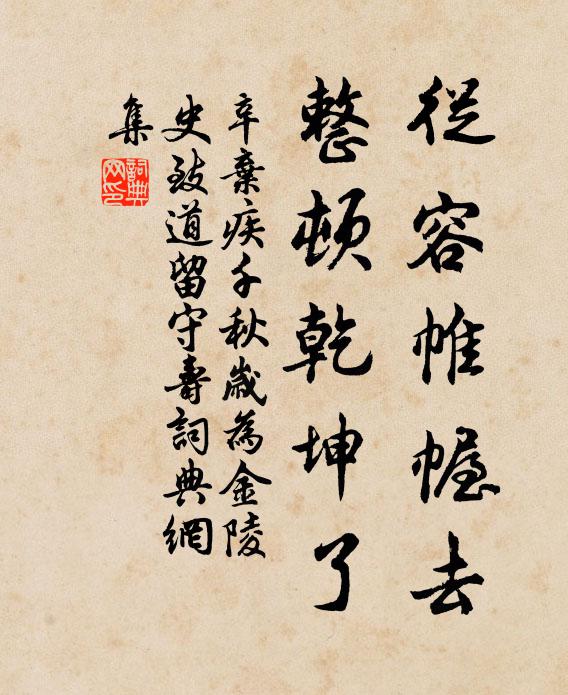 從容帷幄去
整頓乾坤了
辛棄疾千秋歲為金陵
史致道留守壽詞典網
集
詞典網印